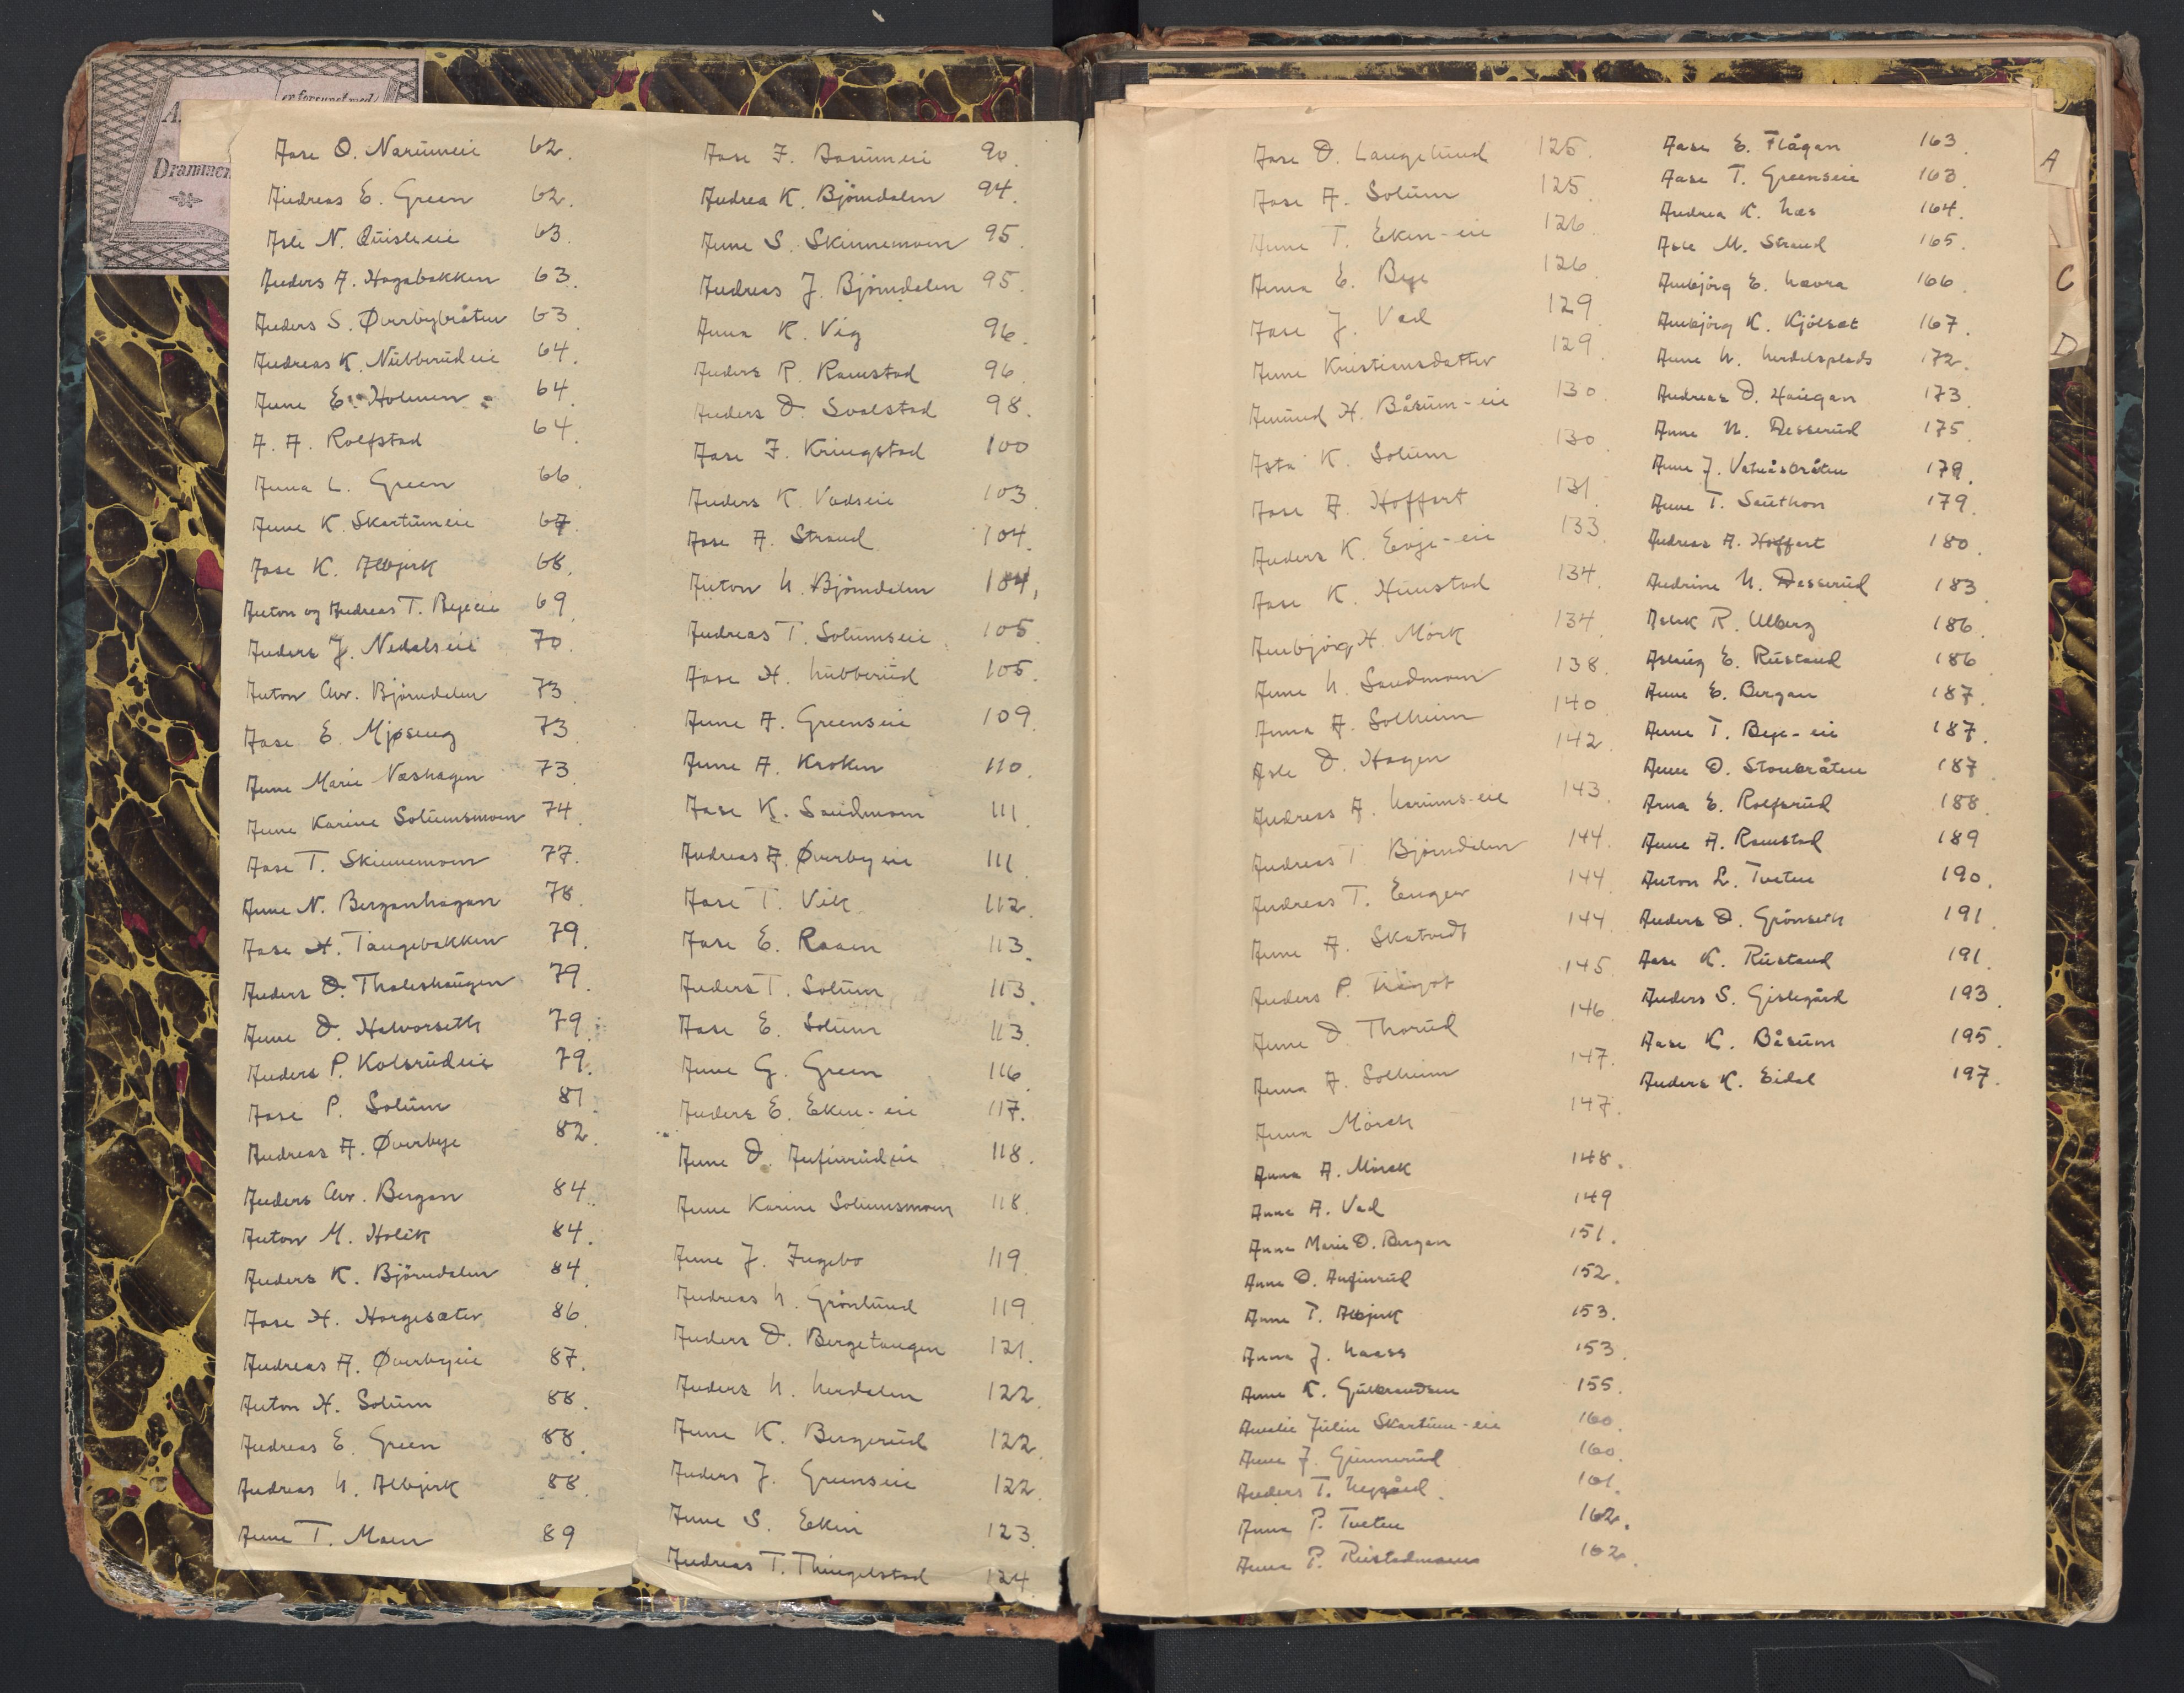 er forsynet med
A
Drammen
Aase O. Narumeie 62.
Andreas E. Green 62.
Asle N. Quisleeie 63.
Anders A. Hagabakken 63.
Anders S. Øverbybråten 63.
Andreas K. Nubberudeie 64.
Anne E. Holmen 64.
A. A. Rolfstad 64.
Anna L. Green 66.
Anne K. Skartumeie 67.
Aase K. Albjerk 68.
Anton og Andreas T. Byeeie 69.
Anders J. Nedalseie 70.
Anton Chr. Björndalen 73.
Aase E. Mjøseng 73.
Anne Marie Næshagen 73.
Anne Karine Solumsmoen 74.
Aase T. Skinnemoen 77.
Anne N. Berganhagan 78.
Aase H. Tangebakken 79.
Anders O. Thaleshaugen 79.
Anne O. Halvorseth 79.
Anders P. Kolsrudeie 79.
Aase P. Solum 81.
Andreas A. Øverbye 82.
Anders Chr. Bergan 84.
Anton M. Holik 84.
Anders K. Björndalen 84.
Aase H. Horgesæter 86.
Andreas A. Øverbyeie 87.
Anton H. Solum 88.
Andreas E. Green 88.
Andreas N. Albjerk 88.
Anne T. Moen 89
Aase F. Basumeie 90.
Andrea K. Björndalen 94.
Anne S. Skinnemoen 95.
Andreas J. Björndalen 95.
Anna K. Vig 96.
Anders R. Ramstad 96.
Anders O. Svalstad 98.
Aase F. Kringstad 100
Anders K. Vadseie 103
Aase A. Strand 104.
Anton N. Björndalen 104,
Andreas T. Solumseie 105.
Aase H. Nubberud 105.
Anne A. Greenseie 109.
Anne A. Kroken 110.
Aase K. Sandmoen 111.
Andreas A. Øverbyeie 111.
Aase T. Vik 112.
Aase E. Raaen 113.
Anders T. Solum 113.
Aase E. Solum 113.
Anne G. Green 116.
Anders E. Eken-eie 117.
Anne O. Anfinrudeie 118.
Anne Karine Solumsmoen 118.
Anne J. Ingebo 119.
Andreas N. Grönlund 119.
Anders O. Bergetangen 121.
Anders N. Nerdalen 122.
Anne K. Bergerud 122.
Anders J. Greenseie 122.
Anne S. Eken 123.
Andreas T. Thingelstad 124.
Aase O. Langelund 125.
Aase A. Solum 125.
Anne T. Eken-eie 126.
Anna E. Bye 126.
Aase J. Vad 129
Anne Kristiansdatter 129.
Amund H. Båsum-eie 130.
Asta K. Solum 130.
Aase A. Hoffart 131.
Anders K. Evje-eie 133.
Aase K. Hunstad 134.
Ambjörg H. Mörk 134.
Anne N. Sandmoen 138.
Anna A. Solheim 140
Asle O. Hagen 142.
Andreas A. Narums-eie 143.
Andreas T. Björndalen 144.
Andreas T. Enger 144.
Anne A. Skatvedt 144
Anders P. 145
Anne O. Thorud 146.
Anna A. Solheim 147.
Anna Mörch 147.
Anna A. Mörck 148.
Anne A. Vad 149
Anne Marie O. Bergan 151.
Anne O. Anfinrud 152.
Anne T. Albjerk 153.
Anna J. Naass 153.
Anne K. Gulbrandsen 155.
Amalie Juline Skartum-eie 160.
Anne J. Gunnerud 160.
Anders T. Nygård 161.
Anna P. Tveten 162.
Anna P. Rustadmoen 162.
Aase E. Flågan 163.
Aase T. Greenseie 163.
Andrea K. Næs 164.
Asle M. Strand 165.
Ambjörg E. Nævra 166.
Ambjörg K. Kjölset 167.
Anne N. Nerdelsplads 172.
Andreas O. Haugan 173.
Anne N. Desserud 175.
Anne J. Vatnåsbråten 179.
Anne T. Sauthon 179.
Andreas A. Hoffart 180.
Andrine N. Desserud 183.
Aslak R. Ulberg 186.
Aslaug E. Rustand 186
Anne E. Bergan 187.
Anne T. Bye-eie 187.
Anne O. Stoveråten 187.
Anna E. Rolfsrud 188.
Anne A. Ramstad 189
Anton L. Tveten 190.
Anders O. Grönseth 191.
Aase K. Rustand 191.
Anders S. Gislegård 193.
Aase K. Båsum 195.
Anders K. Eidal 197.
A
C
D